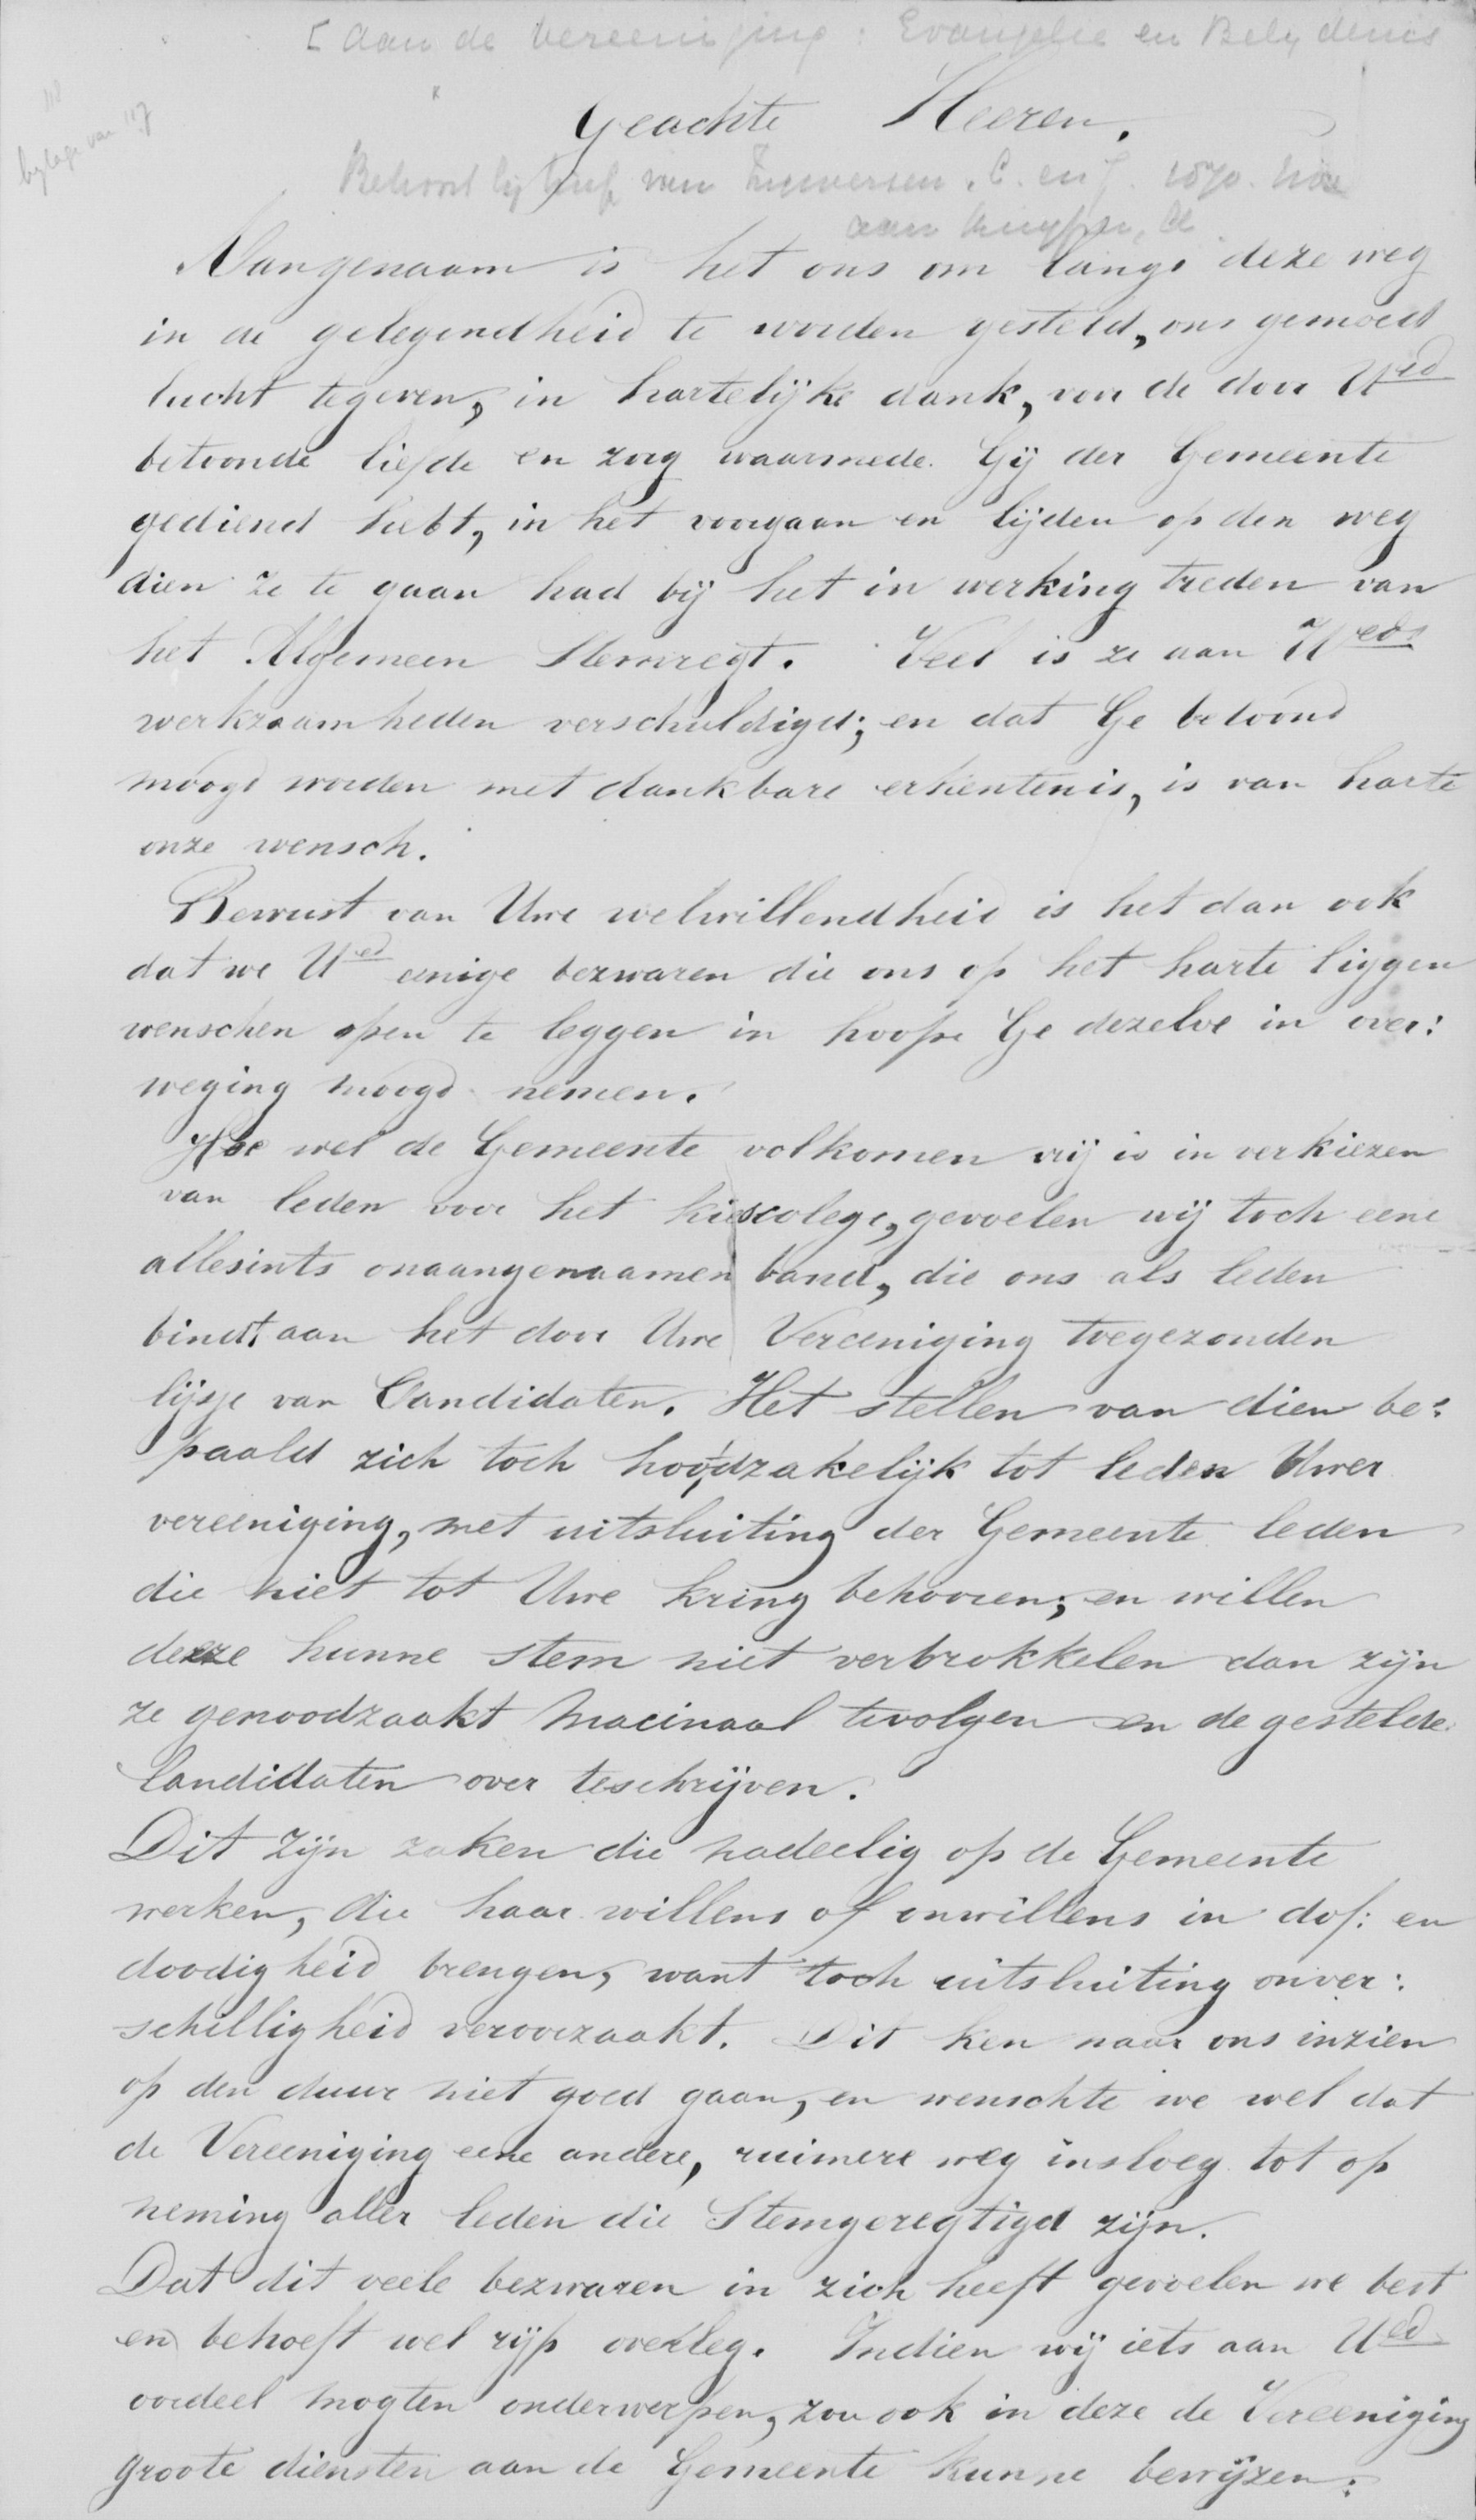 [ aan de Vereeniging : Evangelie en Belydenis
bylage van 117
Geachte Heeren.
Behoort bij brief van C. en J. 1870. nov
aan Kuyper, A
Aangenaam is het ons om langs deze weg
in de gelegendheid te worden gesteld, ons gemoed
lucht tegeven, in hartelijke dank, voor de door Ued
betoonde liefde en zorg waarmede Gij der Gemeente
gediend hebt, in het voorgaan en lijden op den weg
dien ze te gaan had bij het in werking treden van
het Algemeen Stemregt. Veel is ze aan Ueds
werkzaamheden verschuldigd; en dat Ge beloond
moogt worden met dankbare erkentenis, is van harte
onze wensch.
Bewust van Uwe welwillendheid is het dan ook
dat we Ued eenige bezwaren die ons op het harte liggen
wenschen open te leggen in hoope Ge dezelve in over:
weging moogd nemen.
Hoe wel de Gemeente volkomen vrij is in verkiezen
van leden voor het kiescolege, gevoelen wij toch eene
allesints onaangenaamen band, die ons als leden
bindt aan het door Uwe Vereeniging toegezonden
lijsje van Candidaten. Het stellen van dien be:
paald zich toch hoofdzakelijk tot leden Uwer
vereeniging, met uitsluiting der Gemeente leden
die niet tot Uwe kring behooren; en willen
deze hunne stem niet verbrokkelen dan zijn
ze genoodzaakt macinaal tevolgen en de gestelde
Candidaten over teschrijven.
Dit zijn zaken die nadeelig op de Gemeente
werken, die haar willens of onwillens in dof: en
doodigheid brengen, want toch uitsluiting onver:
schilligheid veroorzaakt. Dit ken naar ons inzien
op den duur niet goed gaan, en wenschte we wel dat
de Vereeniging eene andere, ruimere weg insloeg tot op
neming aller leden die Stemgeregtigd zijn.
Dat dit veele bezwaren in zich heeft gevoelen we best
en behoeft wel rijp overleg. Indien wij iets aan Ued
oordeel mogten onderwerpen, zou ook in deze de Vereeniging
groote diensten aan de Gemeente kunne bewijzen: